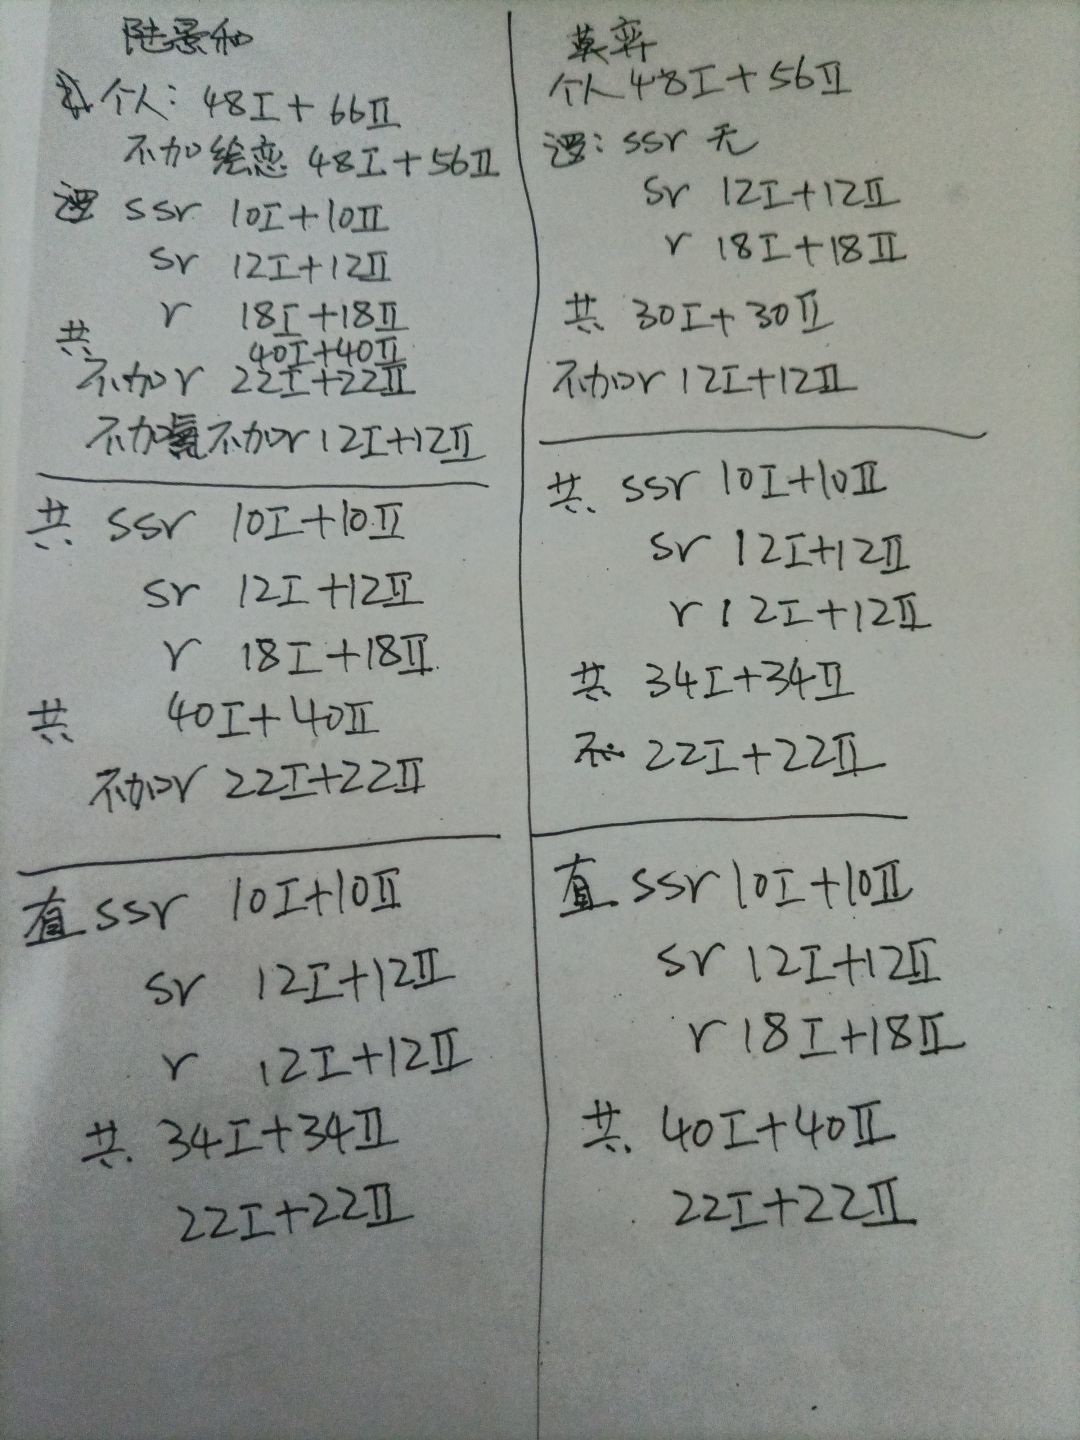 陆景和
个人: 48I+66II
不加绘恋 48I+56II
逻 ssr 10I+10II
sr 12I+12II
r 18I+18II
共 40I+40II
不加r 22I+22II
不加 不加r 12I+12II
共 ssr 10I+10II
sr 12I+12II
r 18I+18II
共 40I+40II
不加r 22I+22II
直 ssr 10I+10II
sr 12I+12II
r 12I+12II
共 34I+34II
22I+22II
莫弈
个人 48I+56II
逻: ssr 无
sr 12I+12II
r 18I+18II
共 30I+30II
不加r 12I+12II
共 ssr 10I+10II
sr 12I+12II
r 12I+12II
共 34I+34II
不 22I+22II
直 ssr 10I+10II
sr 12I+12II
r 18I+18II
共 40I+40II
22I+22II